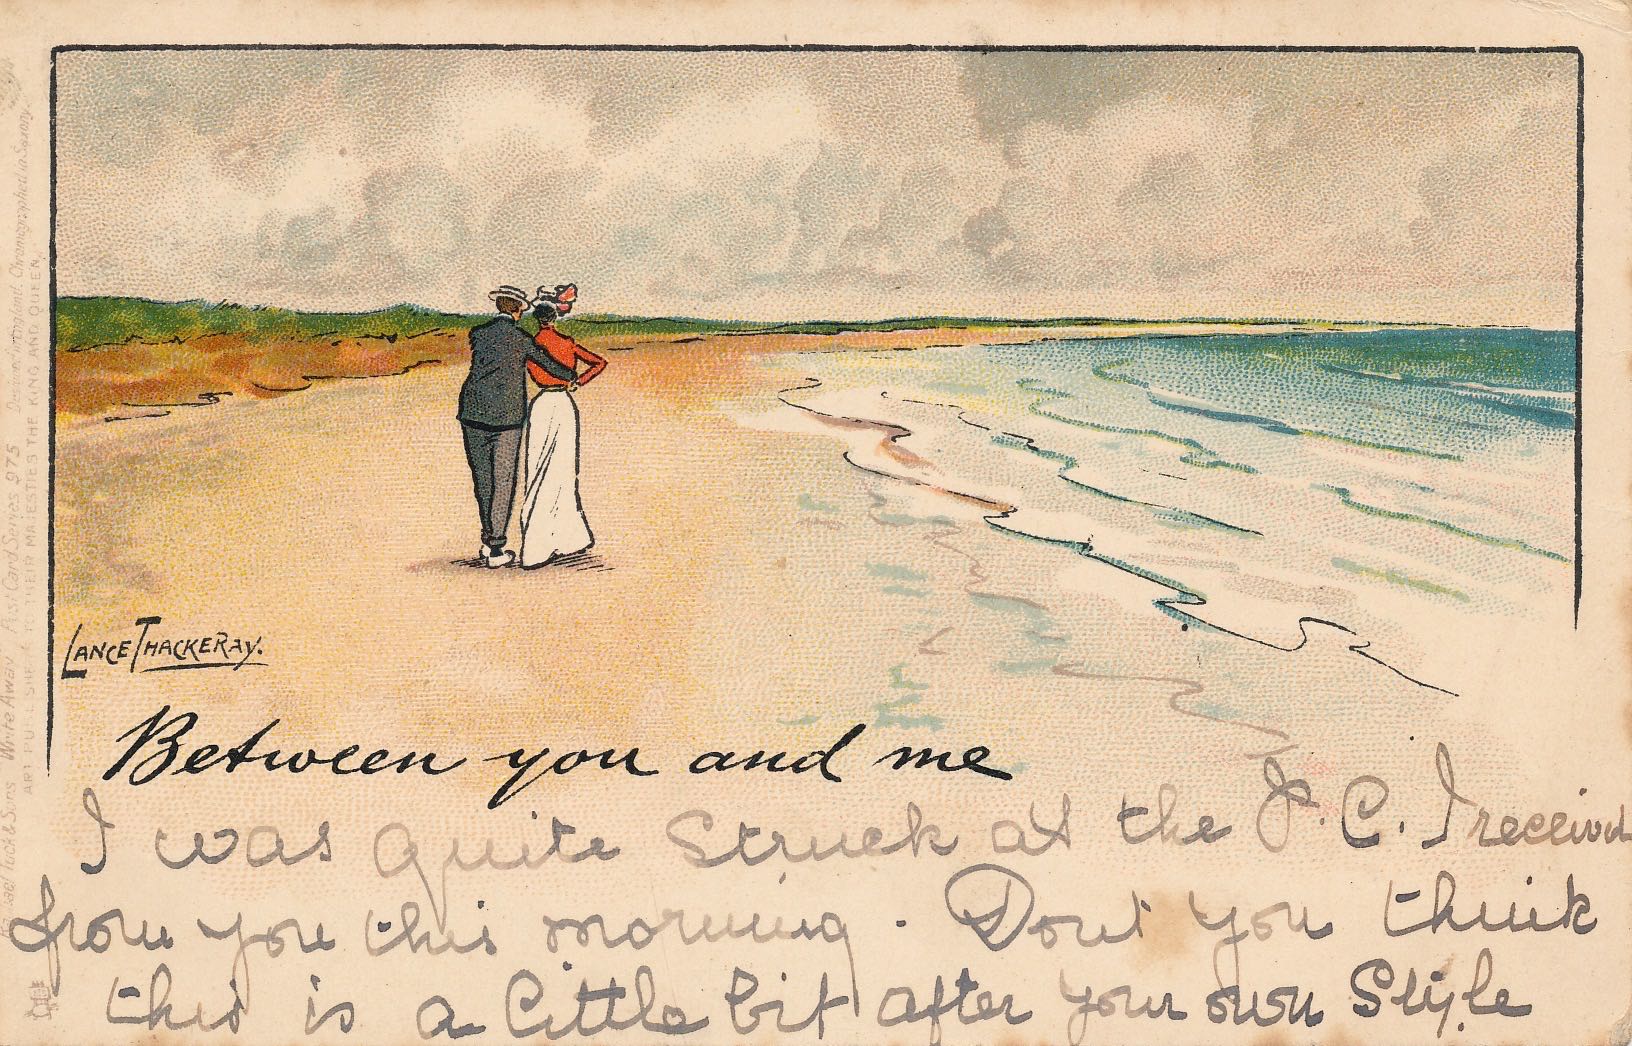 LANCE THACKERAY.
Between you and me
I was quite struck at the P.C. I received
from you this morning. Dont you think
this is a little bit after your own Style
Raphael Tuck & Sons "Write Away" Post Card Series 975 Design in England, Chromographed in Saxony
ART PUBLISHERS TO THEIR MAJESTIES THE KING AND QUEEN.